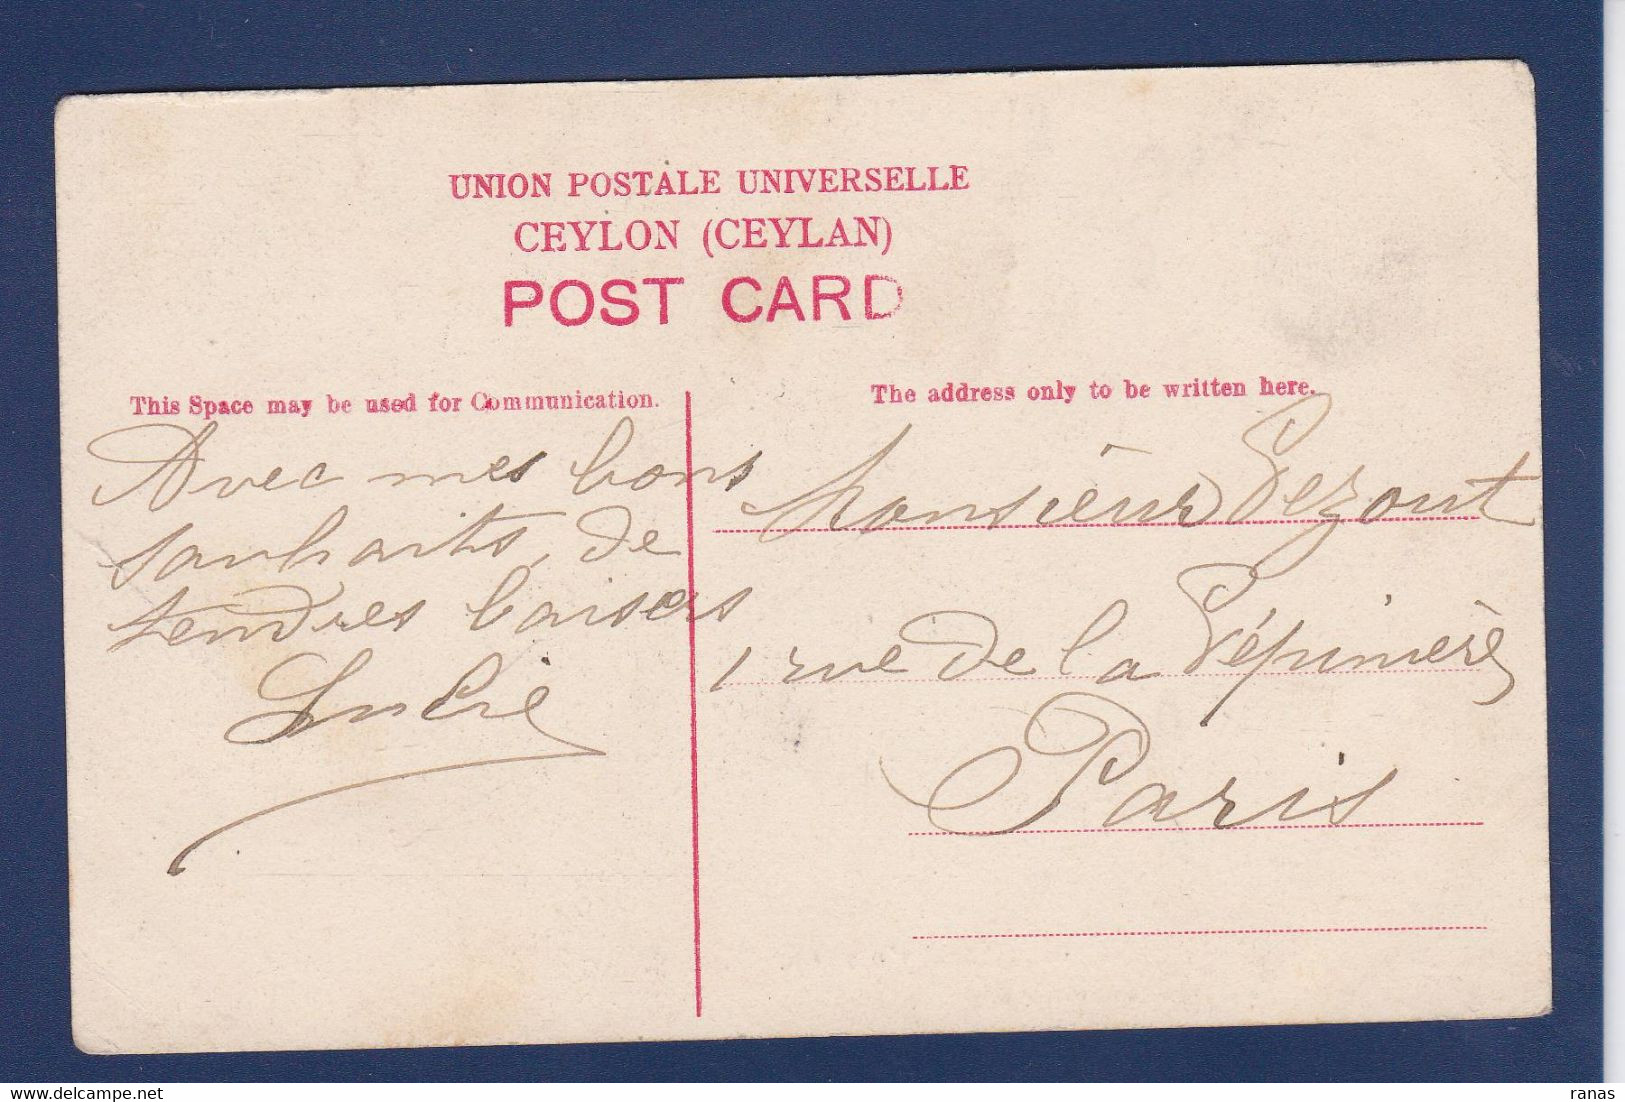 UNION POSTALE UNIVERSELLE
CEYLON (CEYLAN)
POST CARD
This Space may be used for Communication.
The address only to be written here.
Avec mes bons
souhaits, de
tendres baisers
Monsieur
1 rue de la Pépinière
Paris
ranas